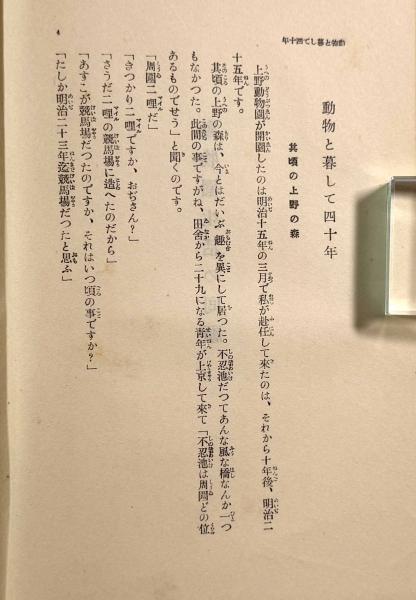 動物と暮して四十年
4
動物と暮して四十年
其頃の上野の森
上野動物園が開園したのは明治十五年の三月で私が赴任して來たのは、それから十年後、明治二
十五年です。
其頃の上野の森は、今とはだいぶ趣を異にして居つた。不忍池だつてあんな風な橋なんか一つ
もなかつた。此間の事ですがね、田舍から二十九になる靑年が上京して來て「不忍池は周圍どの位
あるものでせう」と聞くのです。
「周圍二哩だ」
「きつかり二哩ですか、おぢさん？」
「さうだ二哩の競馬場に造へたのだから」
「あすこが競馬場だつたのですか、それはいつ頃の事ですか？」
「たしか明治二十三年迄競馬場だつたと思ふ」